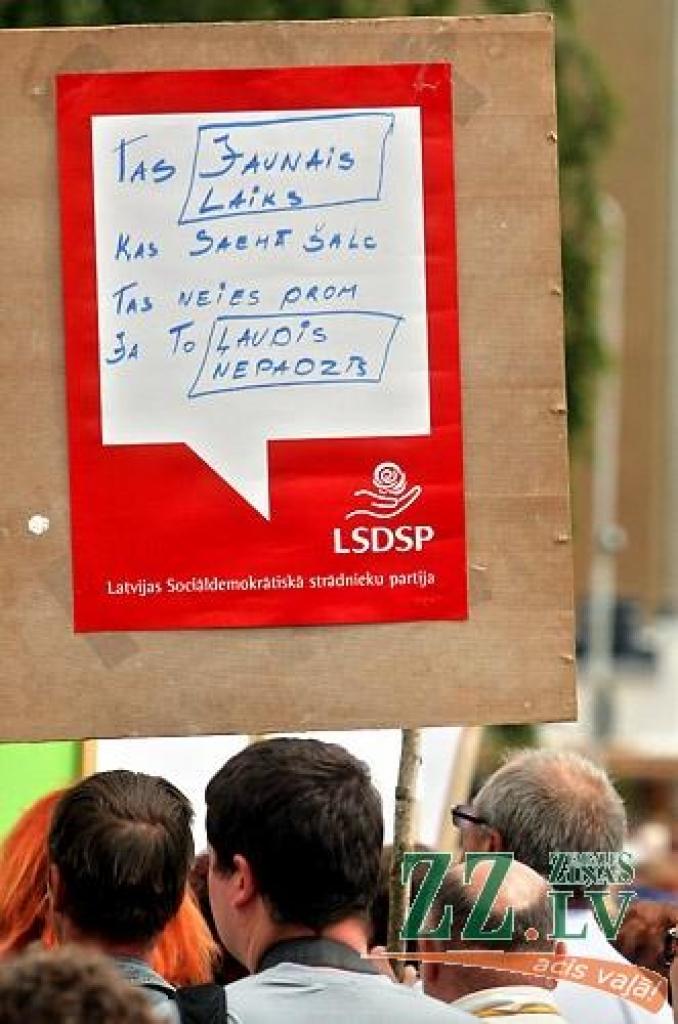 TAS JAUNAIS
LAIKS
ĶAS SAEMĀ ŠALC
TAS NEIES PROM
JA TO ĻAUDIS
NEPADZĪS
LSDSP
Latvijas Sociāldemokrātiskā strādnieku partija
ZEMGALES
ZIŅAS
ZZ.LV
acis vaļā!